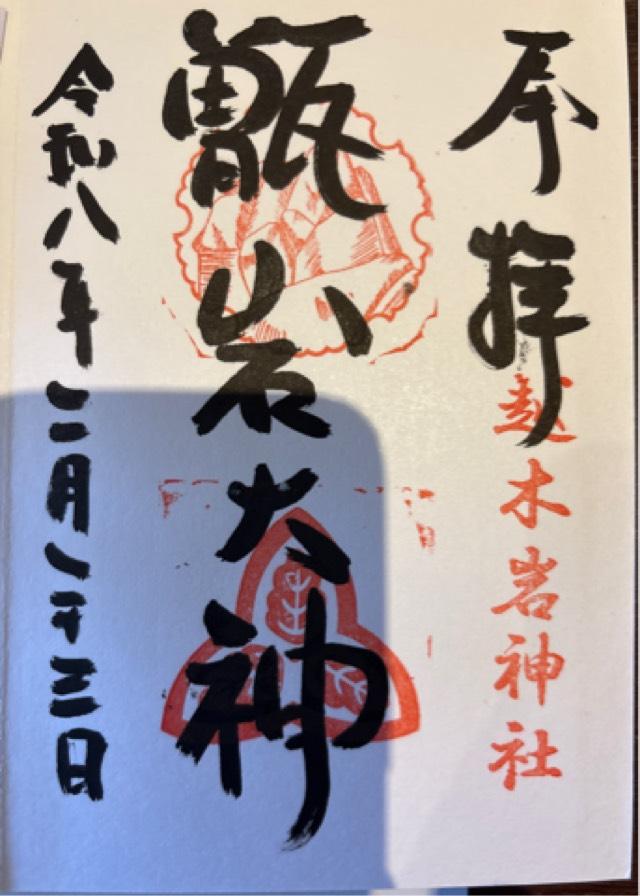 奉拝
越木岩神社
甑岩大神
令和八年二月二十三日